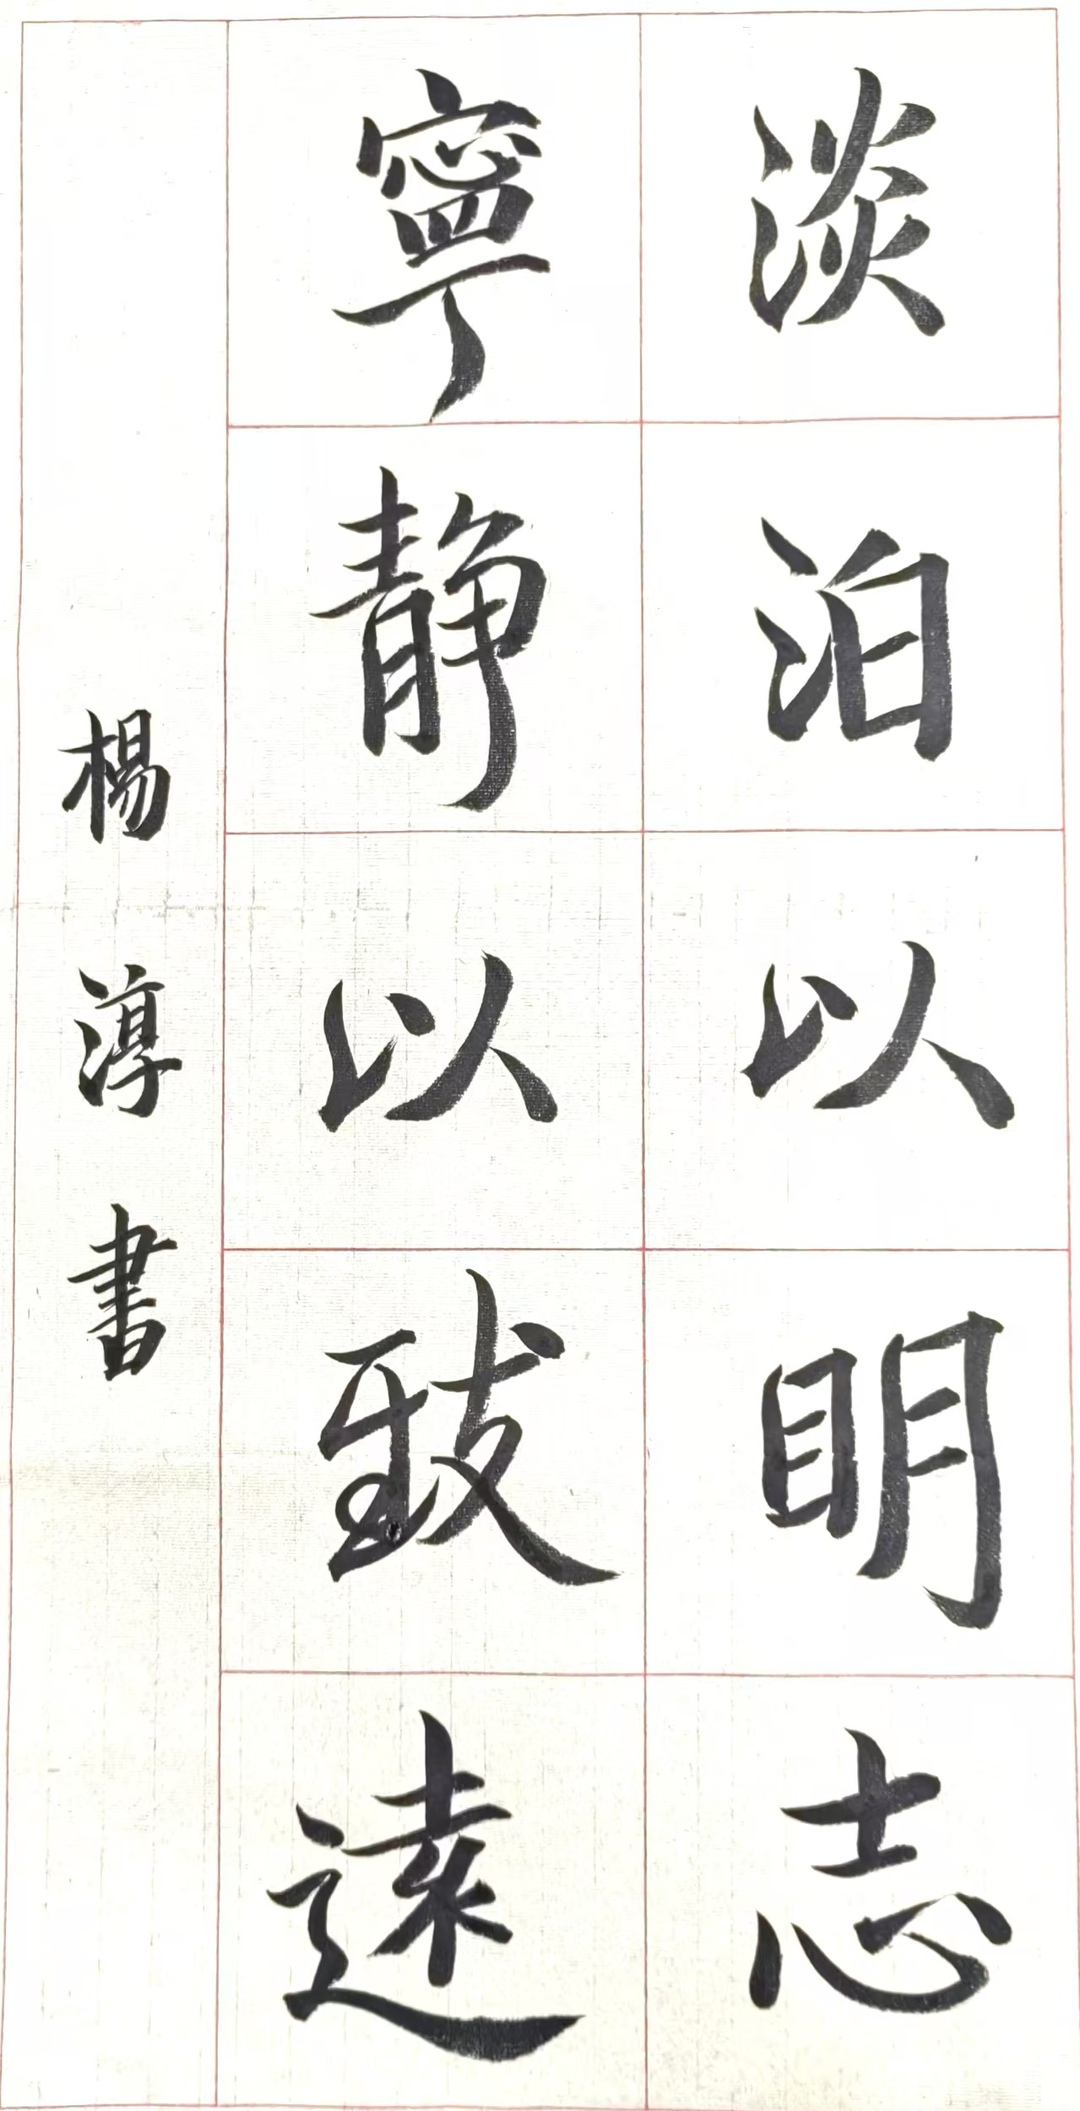 淡泊以明志
寧静以致遠
楊淳書